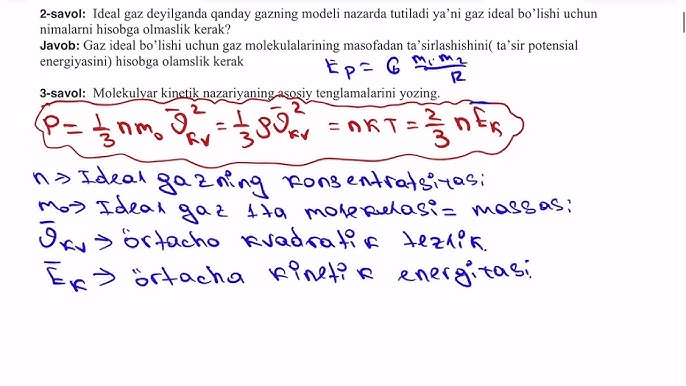 2-savol: Ideal gaz deyilganda qanday gazning modeli nazarda tutiladi ya’ni gaz ideal bo’lishi uchun
nimalarni hisobga olmaslik kerak?
Javob: Gaz ideal bo’lishi uchun gaz molekulalarining masofadan ta’sirlashishini( ta’sir potensial
energiyasini) hisobga olamslik kerak
Eₚ = G m₁·m₂/R
3-savol: Molekulyar kinetik nazariyaning asosiy tenglamalarini yozing.
P = 1/3 n m₀ ϑ̄²ₖᵥ = 1/3 ρ ϑ̄²ₖᵥ = nKT = 2/3 n Ēₖ
n → Ideal gazning konsentratsiyasi
m₀ → Ideal gaz 1ta molekulasi massasi
ϑ̄ₖᵥ → o'rtacho kvadratik tezlik
Ēₖ → o'rtacha kinetik energiyasi